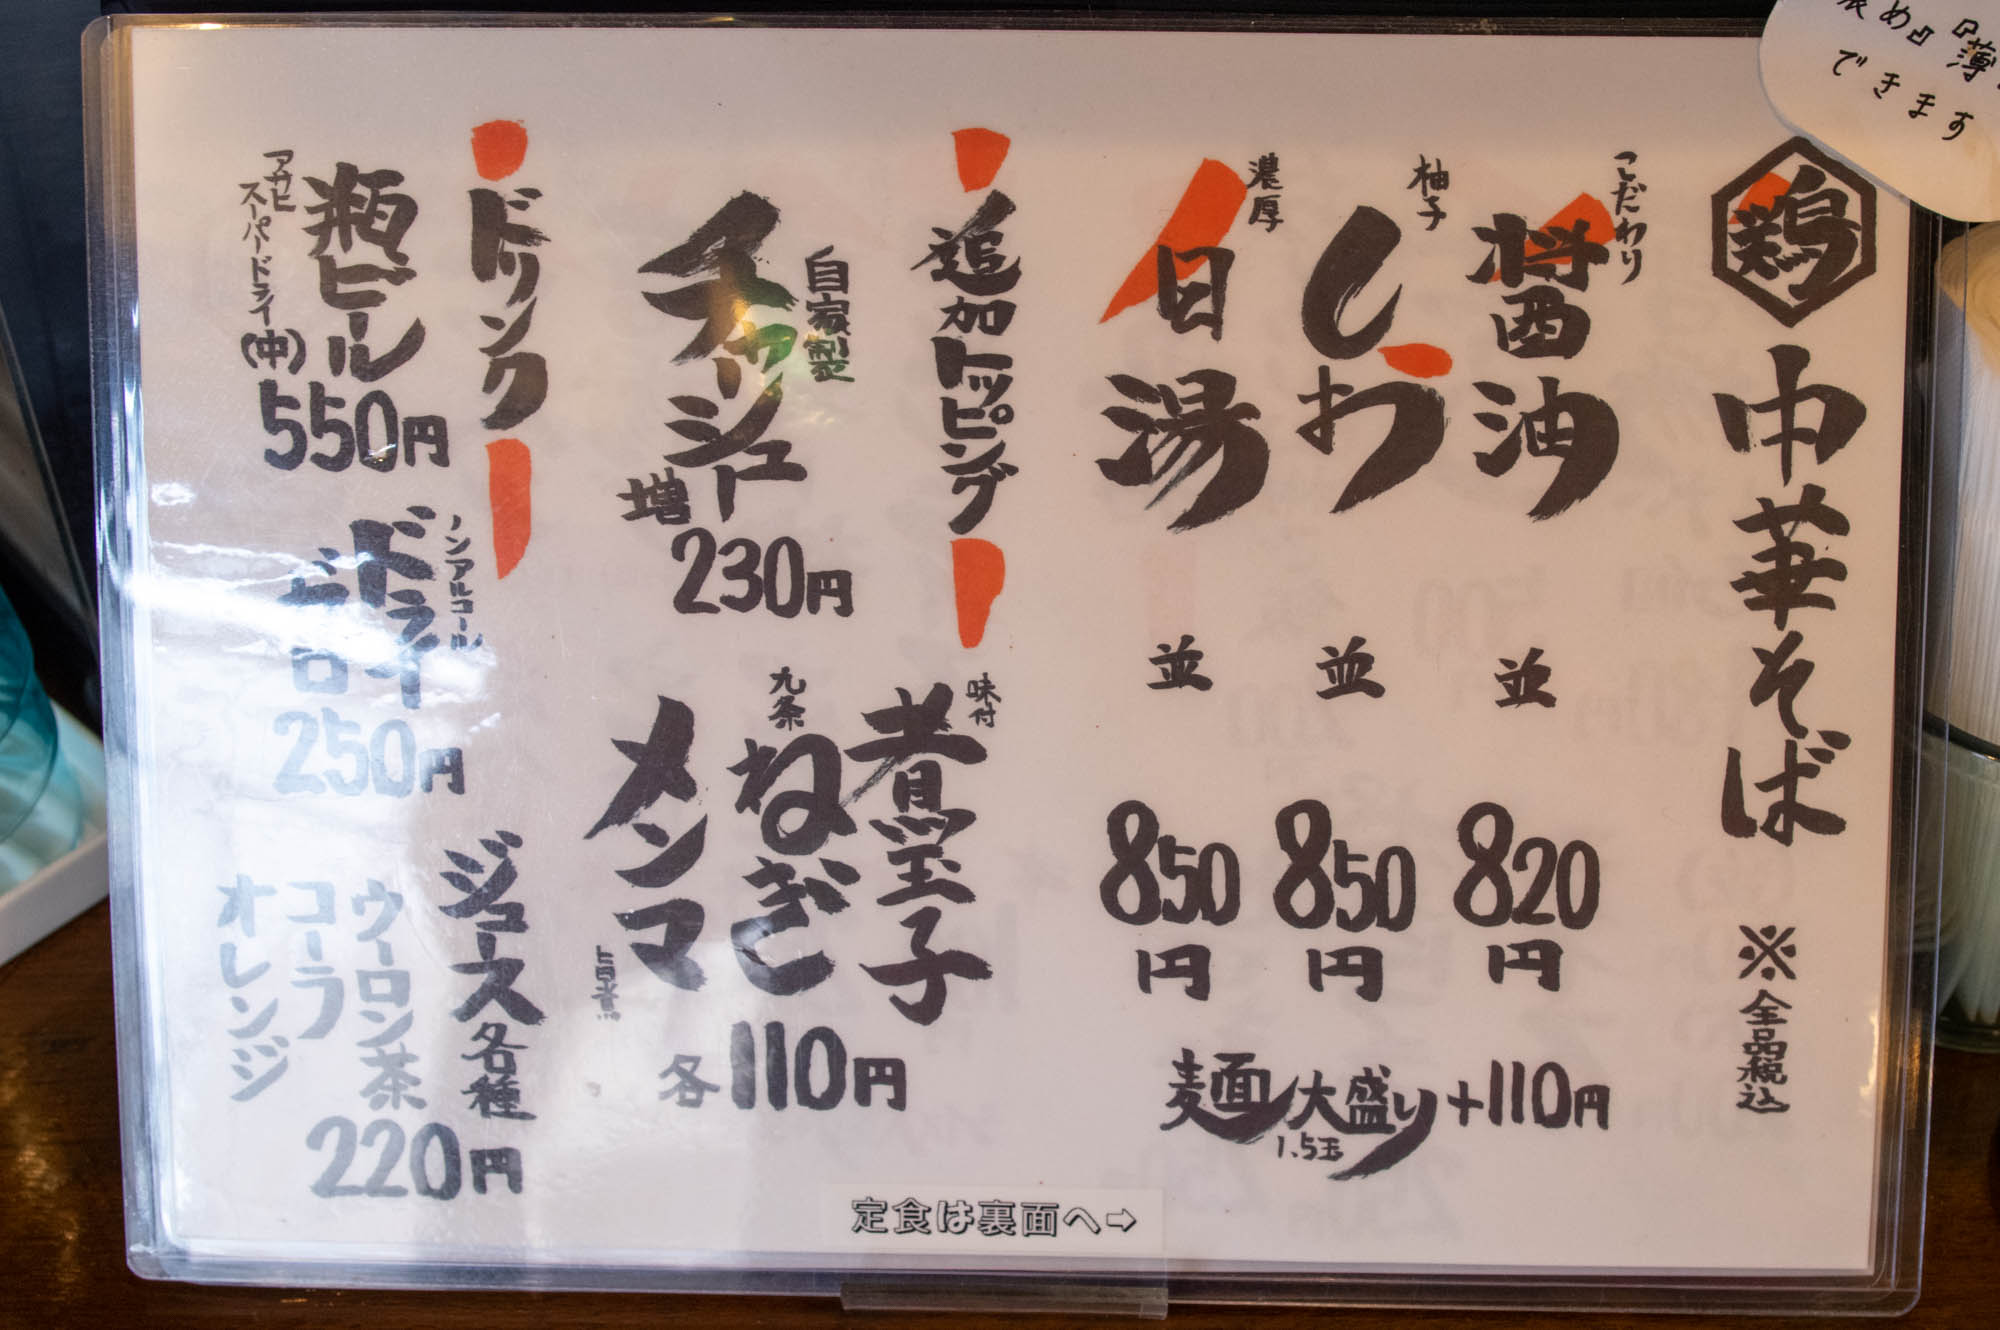 め』『薄
できます
鶏 中華そば ※全品税込
こだわり
醤油 並 820円
柚子
しお 並 850円
濃厚
白湯 並 850円
麺大盛り+110円
1.5玉
追加トッピング
自家製
チャーシュー
増 230円
味付
煮玉子
九条
ねぎ
メンマ
各110円
ドリンク
瓶ビール
アサヒ
スーパードライ(中)
550円
ノンアルコール
ドライ
ゼロ
250円
ジュース各種
ウーロン茶
コーラ
オレンジ
220円
定食は裏面へ⇨